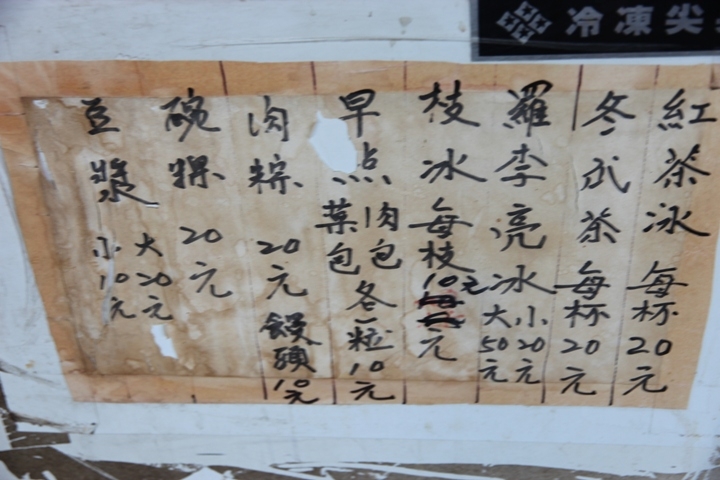 冷凍尖
紅茶泳 每杯20元
冬瓜茶 每杯20元
羅李亮冰 小20元 大50元
枝冰 每枝10元
元
早点 肉包 菜包 各粒10元
肉粽 20元 饅頭10元
碗粿 20元
豆漿 大20元 小10元